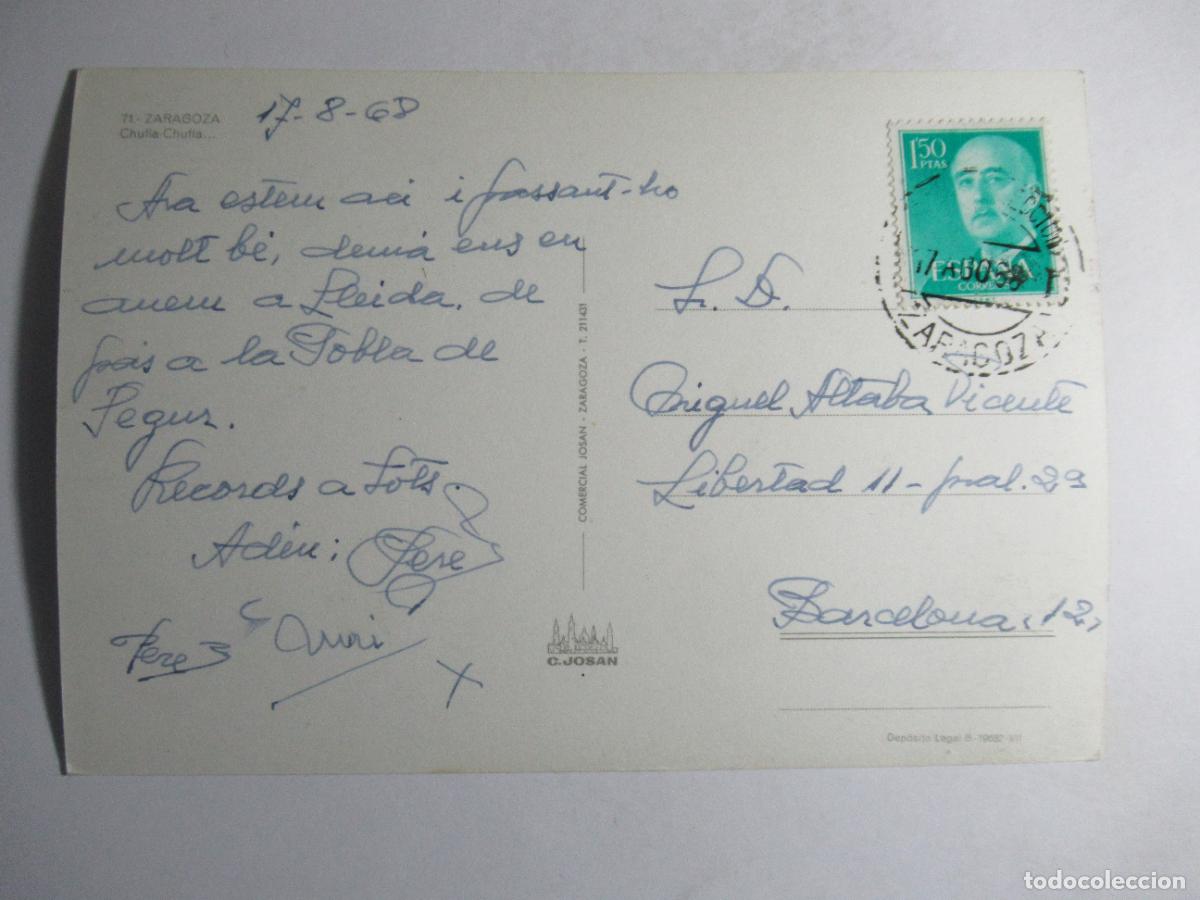 71.- ZARAGOZA
Chufla-Chufla...
17-8-68
Ara estem aci i passant-ho
molt bé, demá ens en
anem a Lleida, de
prés a la Pobla de
Segur.
Records a tots.
Adéu: Pere
Pere Nuri
COMERCIAL JOSAN - ZARAGOZA - T. 211431
C. JOSAN
1'50
PTAS
ESPAÑA
CORREOS
17 AGO 68
ZARAGOZA
Sr. D.
Miguel Altaba Vicente
Libertad 11 - pral. 2ª
Barcelona, 12,
Depósito Legal B.-19682-XII
todocoleccion